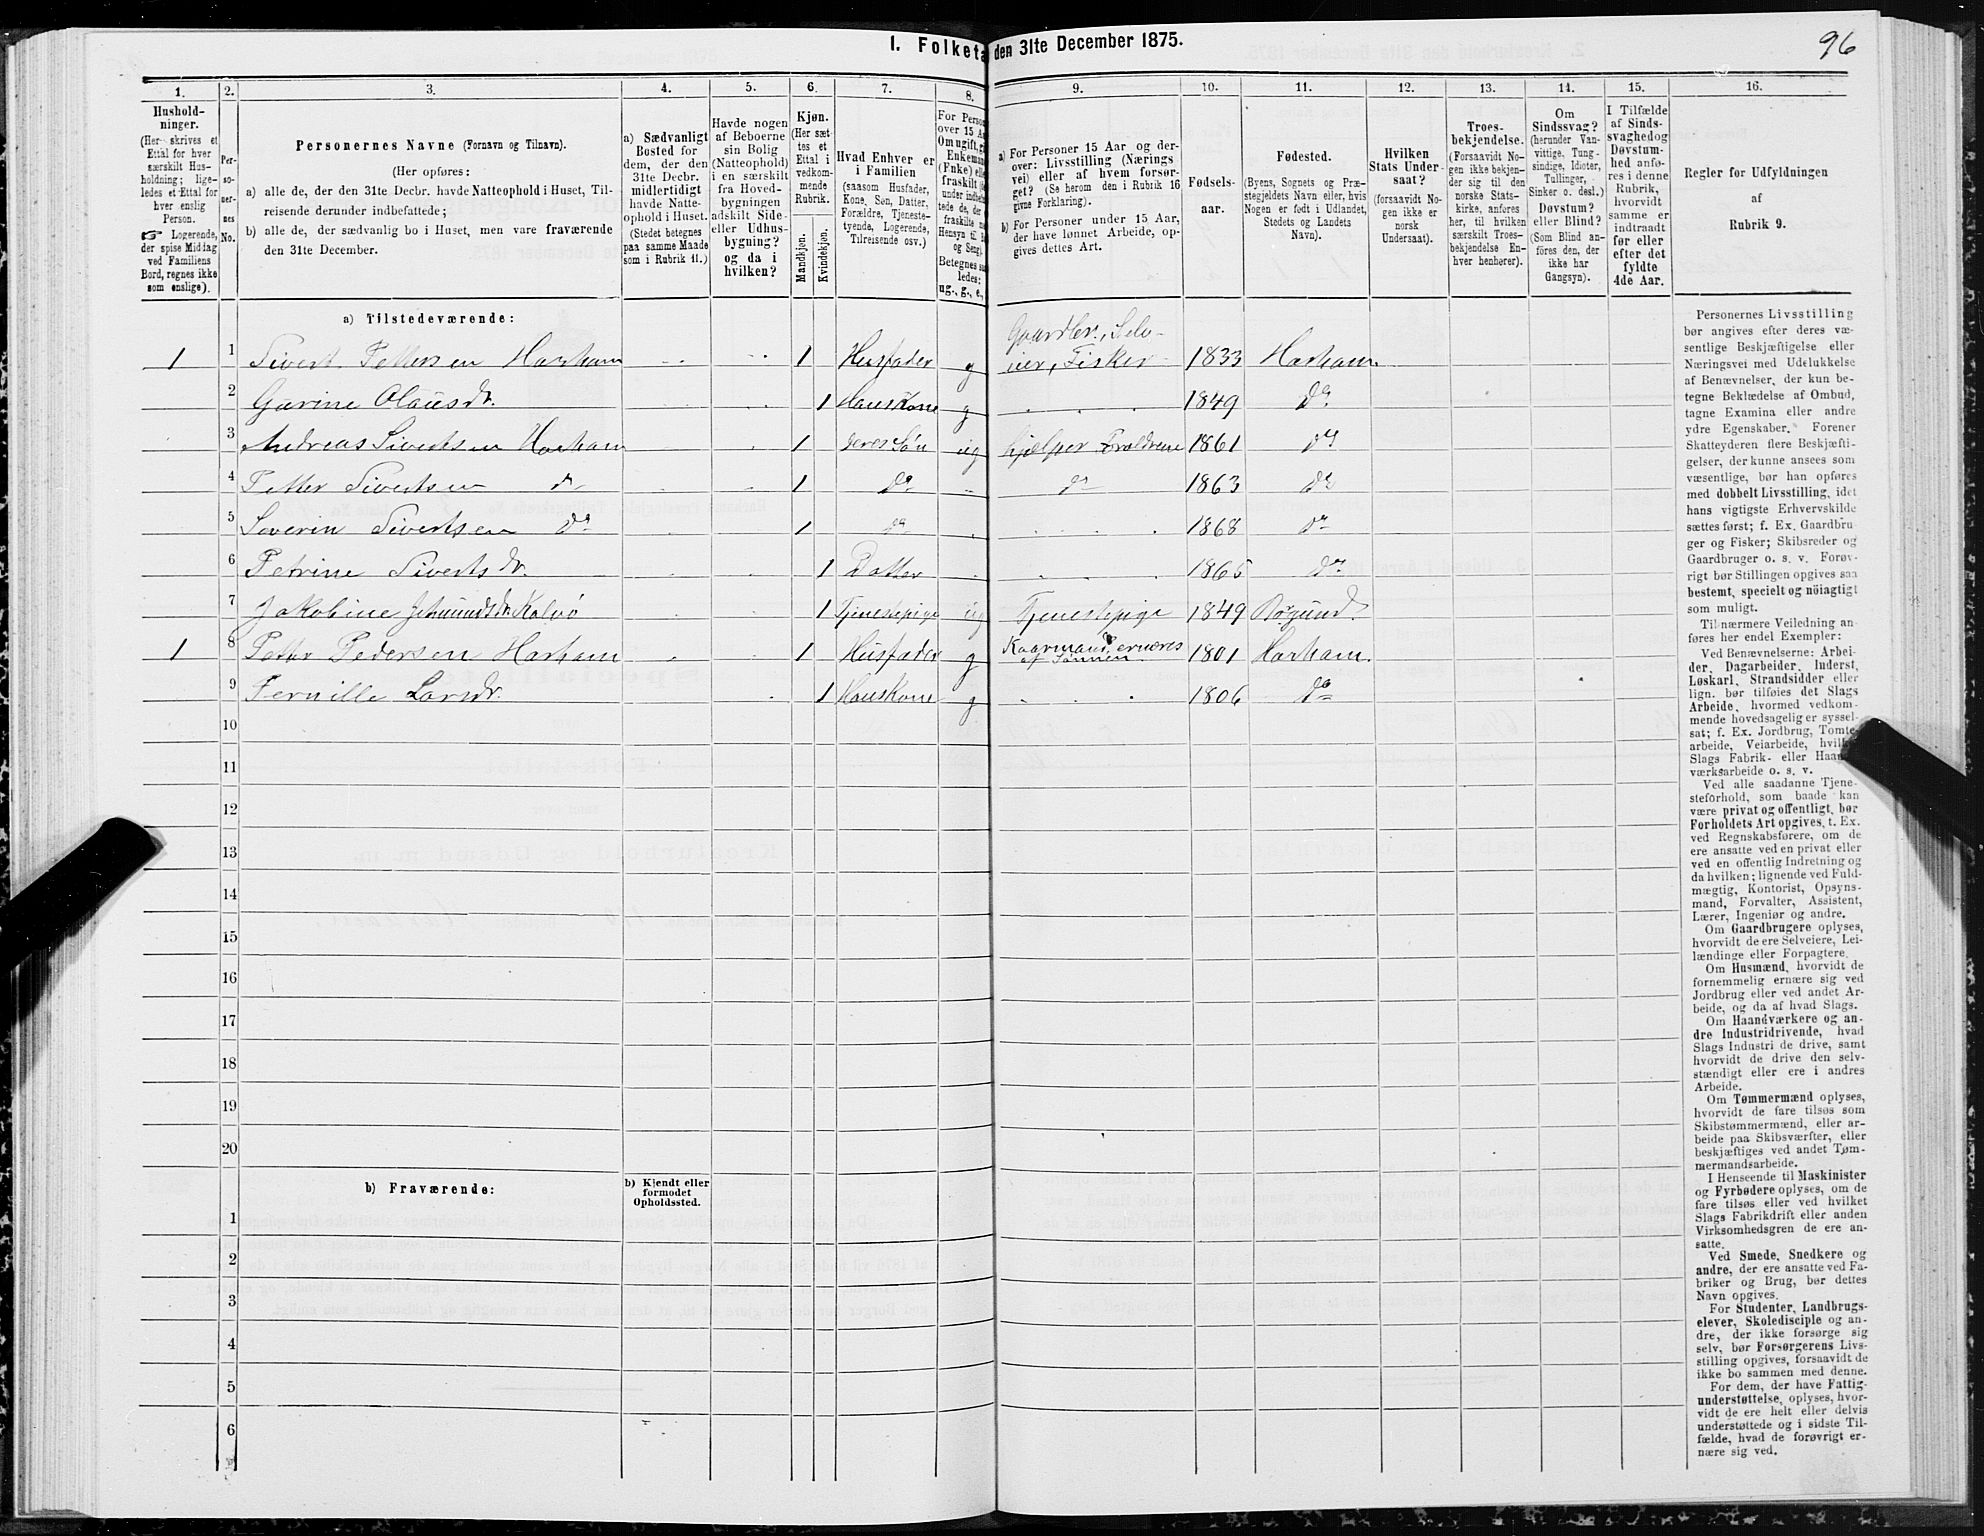 96
1. Folketa den 31te December 1875.
1. 2. 3. 4. 5. 6. 7. 8. 9. 10. 11. 12. 13. 14. 15. 16.
Hushold-
ninger.
(Her skrives et
Ettal for hver
særskilt Hus-
holdning; lige-
ledes et Ettal for
hver enslig
Person.
☞ Logerende,
der spise Middag
ved Familiens
Bord, regnes ikke
som enslige).
Per-
so-
ner-
nes
No.
Personernes Navne (Fornavn og Tilnavn).
(Her opføres:
a) alle de, der den 31te Decbr. havde Natteophold i Huset, Til-
reisende derunder indbefattede;
b) alle de, der sædvanlig bo i Huset, men vare fraværende
den 31te December.
a) Sædvanligt
Bosted for
dem, der den
31te Decbr.
midlertidigt
havde Natte-
ophold i Huset.
(Stedet betegnes
paa samme Maade
som i Rubrik 11.)
Havde nogen
af Beboerne
sin Bolig
(Natteophold)
i en særskilt
fra Hoved-
bygningen
adskilt Side-
eller Udhus-
bygning?
og da i
hvilken?
Kjøn.
(Her sæt-
tes et
Ettal i
vedkom-
mende
Rubrik.
Mandkjøn.
Kvindekjøn.
Hvad Enhver er
i Familien
(saasom Husfader,
Kone, Søn, Datter,
Forældre, Tjeneste-
tyende, Logerende,
Tilreisende osv.)
For Person
over 15 Aa
Om ugift, gi
Enkeman
(Enke) elle
fraskilt
under indbe
tede de, der
fraskilte
Hensyn til
og Seng).
Betegnes saa
ledes:
ug., g., e.,
a) For Personer 15 Aar og der-
over: Livsstilling (Nærings
vei) eller af hvem forsør-
get? (Se herom den i Rubrik 16
givne Forklaring).
b) For Personer under 15 Aar,
der have lønnet Arbeide, op-
gives dettes Art.
Fødsels-
aar.
Fødested.
(Byens, Sognets og Præ-
stegjeldets Navn eller, hvis
Nogen er født i Udlandet,
Stedets og Landets
Navn).
Hvilken
Stats Under-
saat?
(forsaavidt No-
gen ikke er
norsk
Undersaat).
Troes-
bekjendelse.
(Forsaavidt No-
gen ikke bekjen-
der sig til den
norske Stats-
kirke, anføres
her, til hvilken
særskilt Troes-
bekjendelse En-
hver henhører).
Om
Sindssvag?
(herunder Van-
vittige, Tung-
sindige, Idioter,
Tullinger,
Sinker o. desl.)
Døvstum?
eller Blind?
(Som Blind an-
føres den, der
ikke har
Gangsyn).
I Tilfælde
af Sinds-
svaghed og
Døvstum-
hed anfø-
res i denne
Rubrik,
hvorvidt
samme er
indtraadt
før eller
efter det
fyldte
4de Aar.
Regler for Udfyldningen
af
Rubrik 9.
a) Tilstedeværende:
Gaardbr., Selv-
1 1 Sivert Pettersen Harham 1 Husfader g eier, Fisker 1833 Harham
2 Gurine Olausdr. 1 Huuskone g 1849 do
3 Andreas Sivertsen Harham 1 deres Søn ug hjelper Foreldrene 1861 do
4 Petter Sivertsen do 1 do do 1863 do
5 Severin Sivertsen do 1 do 1868 do
6 Petrine Sivertsdr. 1 Datter 1865 do
7 Jakobine Jetmundsdr. Kalvø 1 Tjenestepige ug Tjenestepige 1849 Borgund
1 8 Petter Pedersen Harham 1 Husfader g Kaarmand, ernæres af Sønnen 1801 Harham
9 Pernille Larsdr. 1 Huuskone g 1806 do
10
11
12
13
14
15
16
17
18
19
20
b) Fraværende:
b) Kjendt eller
formodet
Opholdssted.
1
2
3
4
5
6
Personernes Livsstilling
bør angives efter deres væ-
sentlige Beskjæftigelse eller
Næringsvei med Udelukkelse
af Benævnelser, der kun be-
tegne Beklædelse af Ombud,
tagne Examina eller andre
ydre Egenskaber. Forener
Skatteyderen flere Beskjæfti-
gelser, der kunne ansees som
væsentlige, bør han opføres
med dobbelt Livsstilling, idet
hans vigtigste Erhvervskilde
sættes først; f. Ex. Gaardbru-
ger og Fisker; Skibsreder og
Gaardbruger o. s. v. Forøv-
rigt bør Stillingen opgives saa
bestemt, specielt og nöiagtigt
som muligt.
Til nærmere Veiledning an-
føres her endel Exempler:
Ved Benævnelserne: Arbei-
der, Dagarbeider, Inderst,
Løskarl, Strandsidder eller
lign. bør tilføies det Slags
Arbeide, hvormed vedkom-
mende hovedsagelig er syssel-
sat; f. Ex. Jordbrug, Tomte-
arbeide, Veiarbeide, hvilket
Slags Fabrik- eller Haand-
værksarbeide o. s. v.
Ved alle saadanne Tjene-
steforhold, som baade kan
være privat og offentligt, bør
Forholdets Art opgives, t. Ex.
ved Regnskabsførere, om de
ere ansatte ved en privat eller
ved en offentlig Indretning og
da hvilken; lignende ved Fuld-
mægtig, Kontorist, Opsyns-
mand, Forvalter, Assistent,
Lærer, Ingeniør og andre.
Om Gaardbrugere oplyses,
hvorvidt de ere Selveiere, Lei-
lændinge eller Forpagtere.
Om Husmænd, hvorvidt de
fornemmelig ernære sig ved
Jordbrug eller ved andet Ar-
beide, og da af hvad Slags.
Om Haandværkere og an-
dre Industridrivende, hvad
Slags Industri de drive, samt
hvorvidt de drive den selv-
stændigt eller ere i andres
Arbeide.
Om Tømmermænd oplyses,
hvorvidt de fare tilsøs som
Skibstømmermænd, eller ar-
beide paa Skibsværfter, eller
beskjæftiges ved andet Tøm-
mermandsarbeide.
I Henseende til Maskinister
og Fyrbødere oplyses, om de
fare tilsøs eller ved hvilket
Slags Fabrikdrift eller anden
Virksomhedsgren de ere an-
satte.
Ved Smede, Snedkere og
andre, der ere ansatte ved Fa-
briker og Brug, bør dettes
Navn opgives.
For Studenter, Landbrugs-
elever, Skoledisciple og an-
dre, der ikke forsørge sig
selv, bør Forsørgerens Livs-
stilling opgives, forsaavidt de
ikke bo sammen med denne.
For dem, der have Fattig-
understøttelse, oplyses, hvor-
vidt de ere helt eller delvis
understøttede og i sidste Til-
fælde, hvad de forøvrigt er-
nære sig ved.